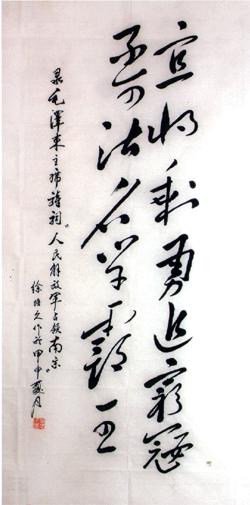 宜将剩勇追窮寇
不可沽名学霸王
录毛澤東主席詩詞“人民解放军占领南京”
徐久作於甲申夏月